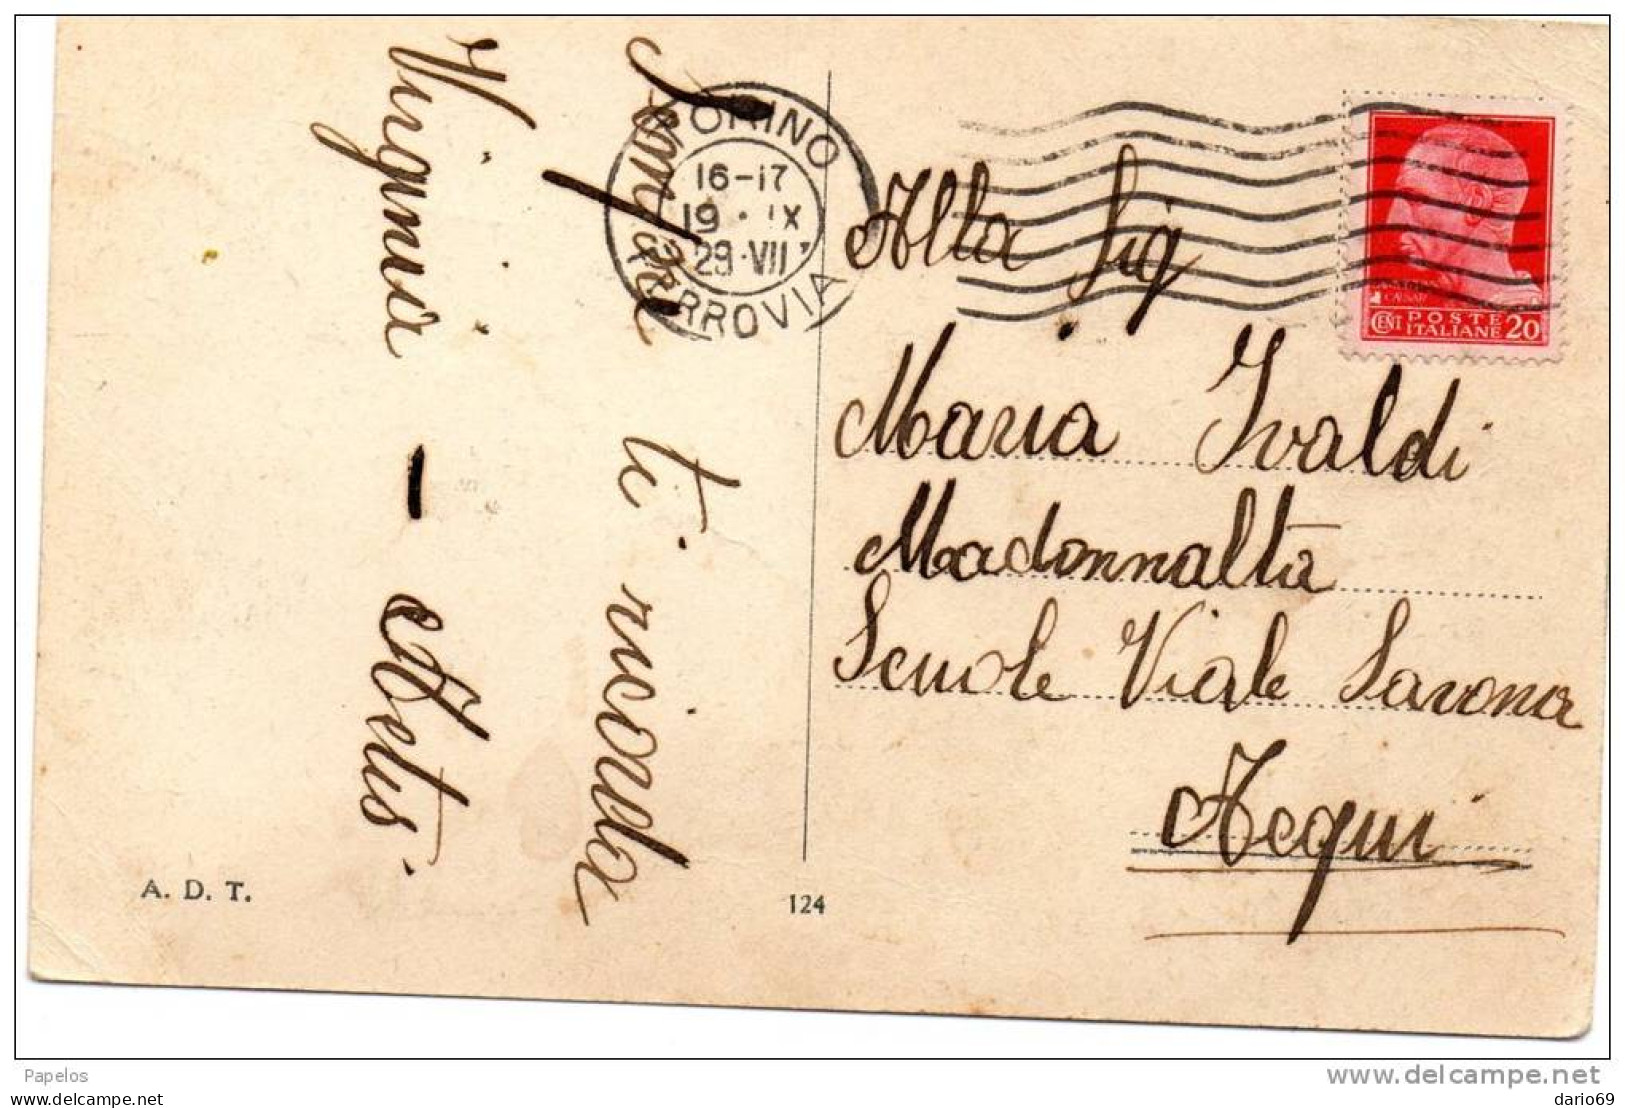 Sempre ti ricorda
Virginia -
TORINO
FERROVIA
16-17
19 · IX
29·VII
CAESAR
CENT POSTE ITALIANE 20
Alla Sig
Maria Ivaldi
Madonnalta
Scuole Viale Savona
Acqui
A. D. T.
124
Papelos
www.delcampe.net
delcampe.net
dario69